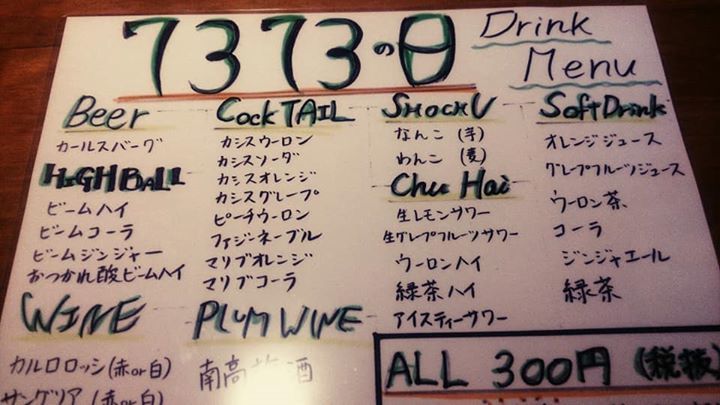 7373の日
Drink
Menu
Beer
カールスバーグ
HIGHBALL
ビームハイ
ビームコーラ
ビームジンジャー
おつかれ酸ビームハイ
WINE
カルロロッシ(赤or白)
サングリア(赤or白)
CockTAIL
カシスウーロン
カシスソーダ
カシスオレンジ
カシスグレープ
ピーチウーロン
ファジーネーブル
マリブオレンジ
マリブコーラ
PLUM WINE
南高 酒
SHOCHU
なんこ(芋)
わんこ(麦)
Chu Hai
生レモンサワー
生グレプフルーツサワー
ウーロンハイ
緑茶ハイ
アイスティーサワー
Soft Drink
オレンジジュース
グレプフルーツジュース
ウーロン茶
コーラ
ジンジャエール
緑茶
ALL 300円(税抜)